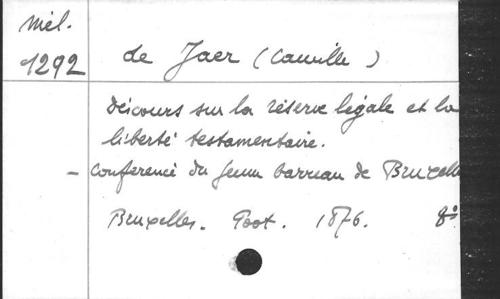 Mél.
1292
de Jaer (Camille)
Discours sur la réserve légale et la
liberté testamentaire.
- Conference du Jeune barreau de Bruxelle
Bruxelles. Poot. 1876. 8º